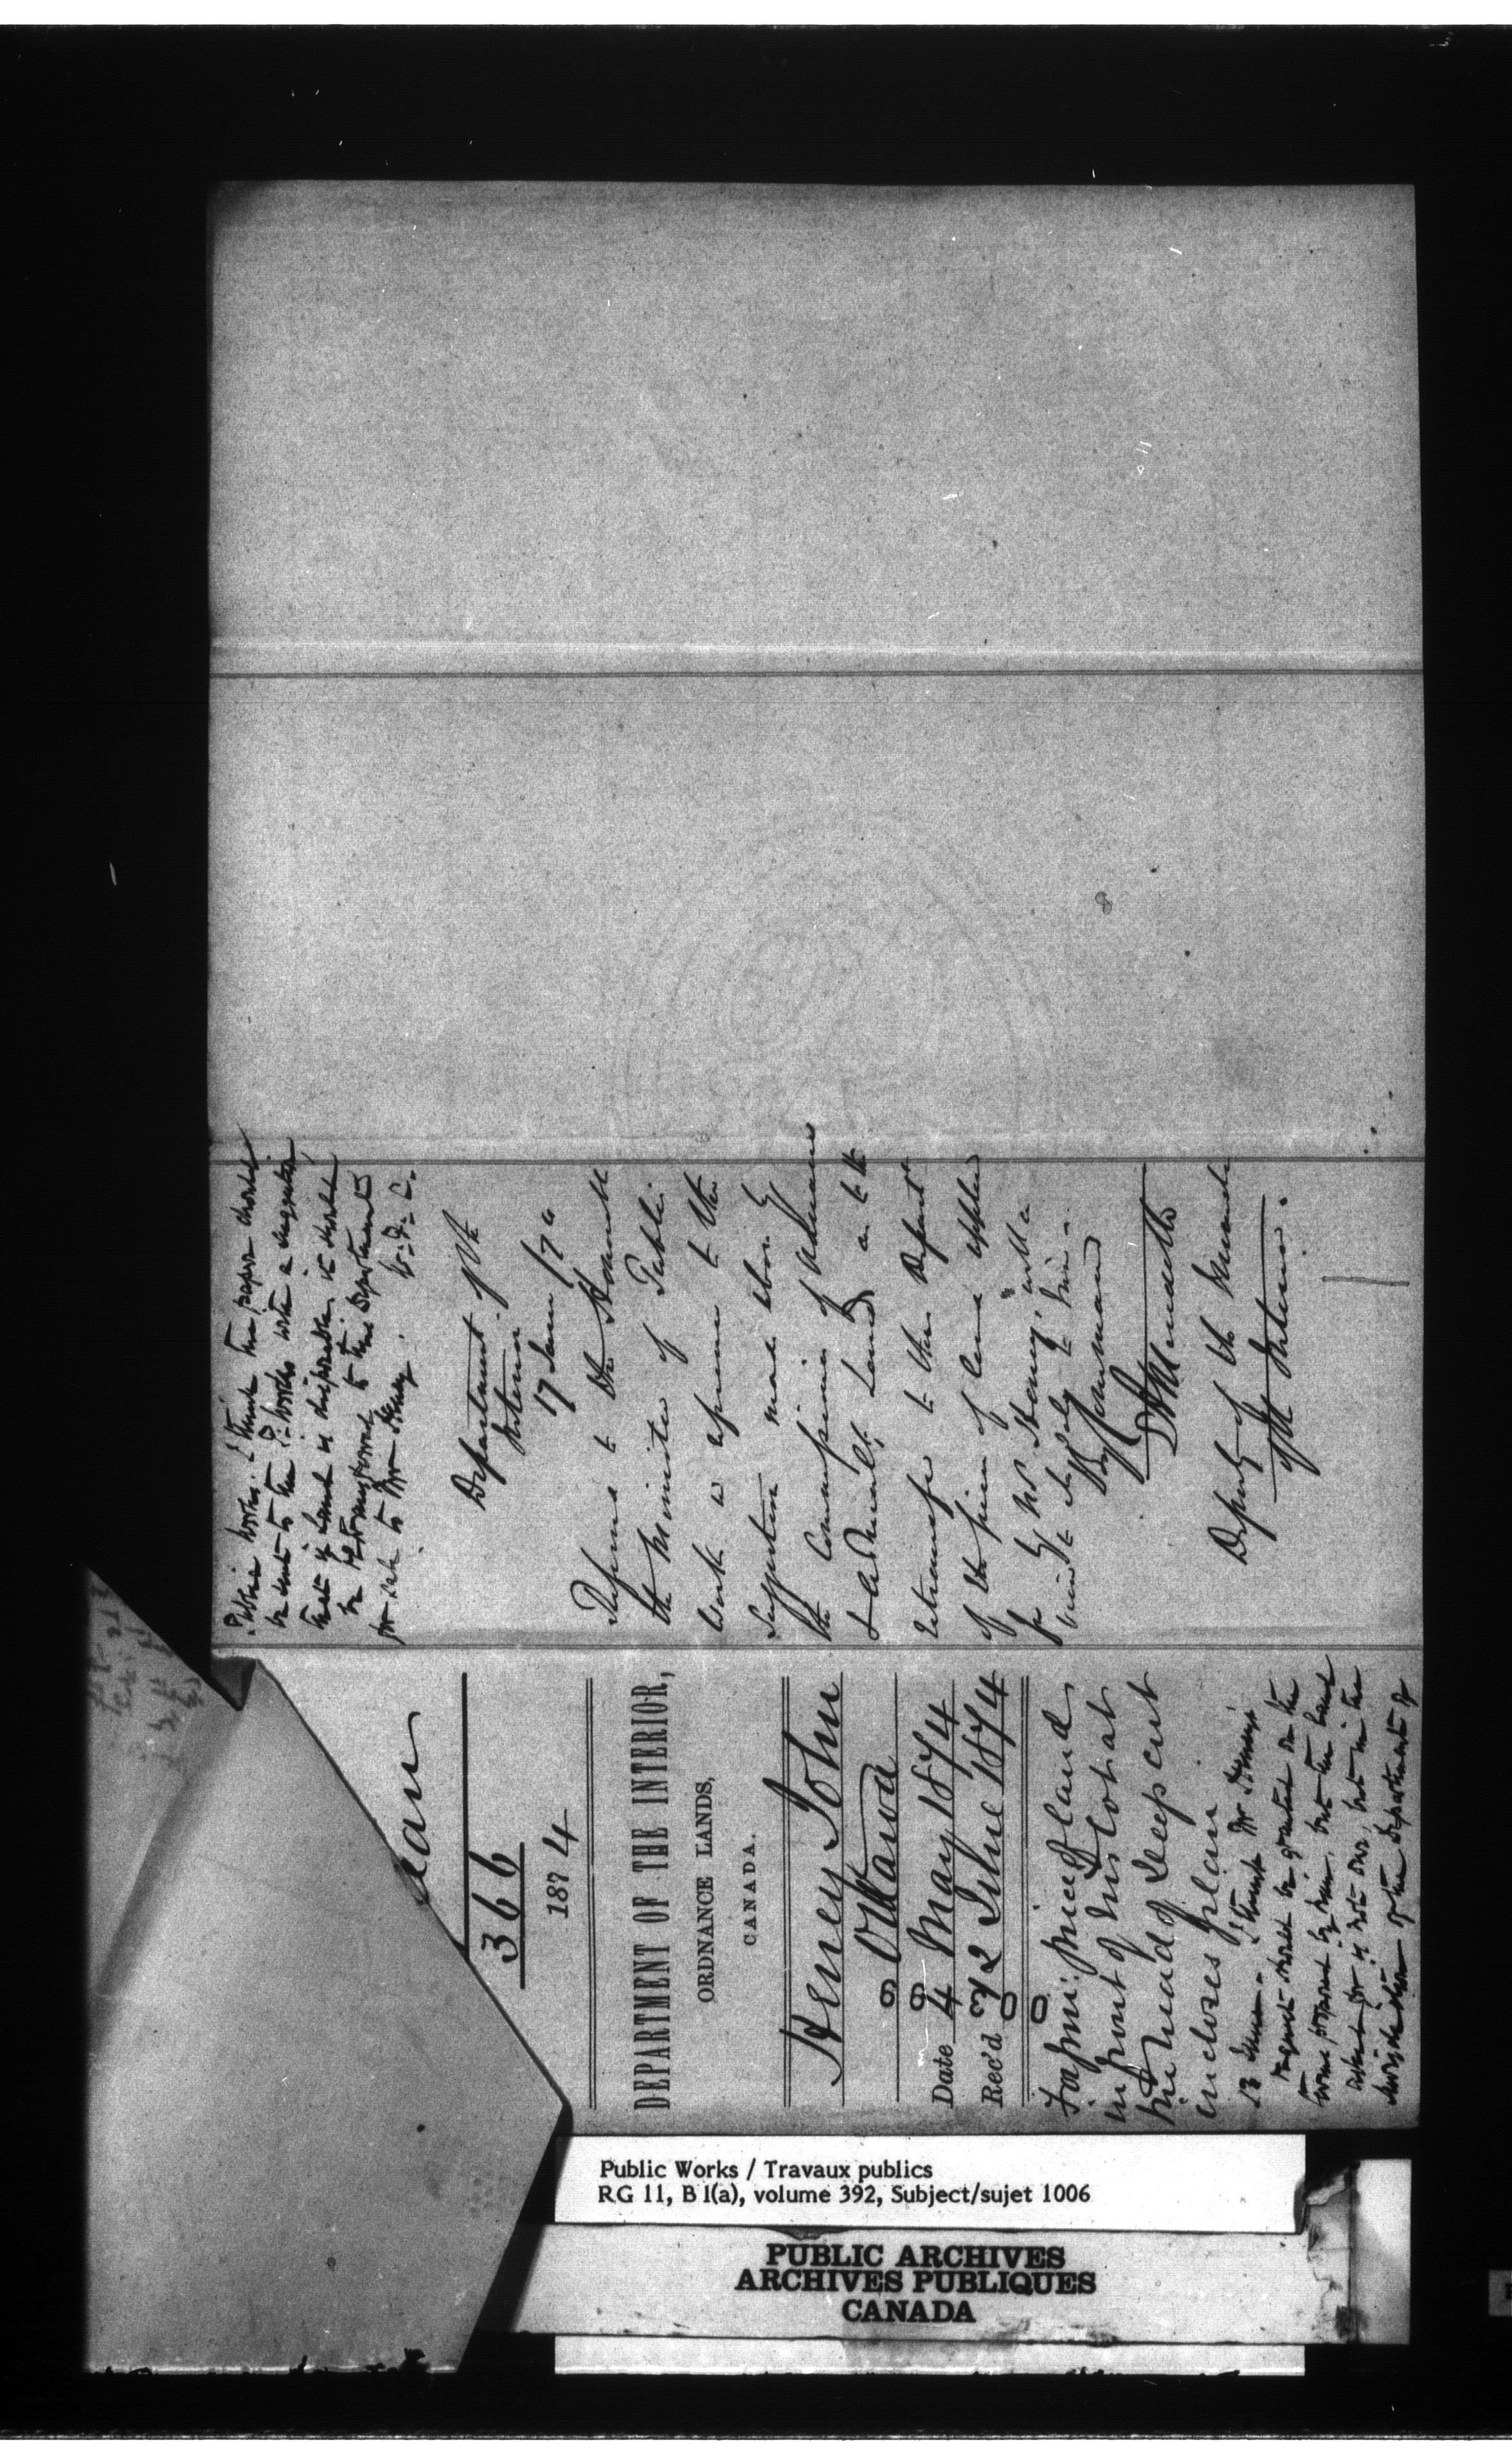 Plan
366
1874
DEPARTMENT OF THE INTERIOR,
ORDNANCE LANDS,
CANADA.
Heney John
Ottawa
Date 4 May 1874
Rec'd 2 June 1874
piece of land
in front of his lot at
the head of Deep cut
incloses plan.
13 June - I think Mr Heney's
request should be granted on the
terms proposed by him, but the land
asked for is not our, but in the
jurisdiction of the Department of
Public Works. I think this paper should
be sent to the P. Works with a suggestion
that if land is disposable, it should
be transferred to this Department
for sale to Mr Heney.
Department of the
Interior
17 June /74
Referred to the Honorable
the Minister of Public
Works in reference to the
suggestion made above by
the Commissioner of Ordnance
& Admiralty Lands as to the
to this Depart
of the piece of land applied
for by Mr Heney, with a
view to
By command
Deputy of the Minister
of the Interior.
Public Works / Travaux publics
RG 11, B 1(a), volume 392, Subject/sujet 1006
PUBLIC ARCHIVES
ARCHIVES PUBLIQUES
CANADA